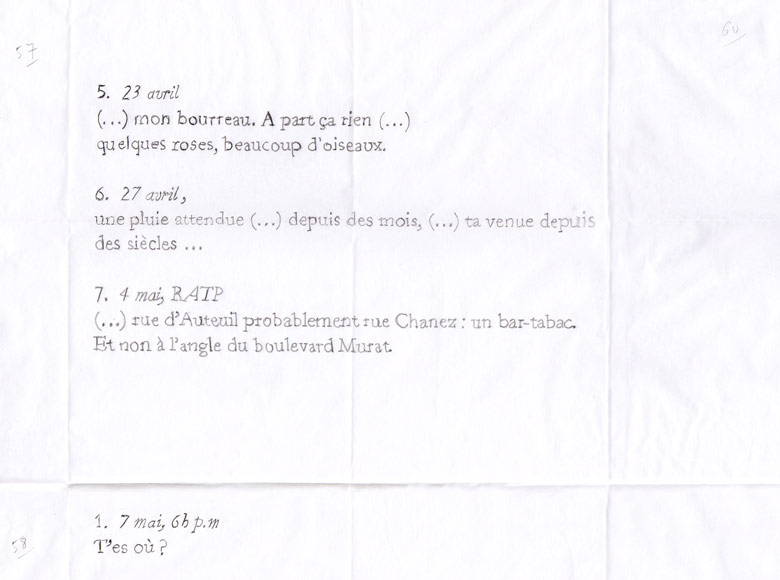 57
60
5. 23 avril
(...) mon bourreau. A part ça rien (...)
quelques roses, beaucoup d'oiseaux.
6. 27 avril,
une pluie attendue (...) depuis des mois, (...) ta venue depuis
des siècles ...
7. 4 mai, RATP
(...) rue d'Auteuil probablement rue Chanez : un bar-tabac.
Et non à l'angle du boulevard Murat.
1. 7 mai, 6h p.m
58
T'es où ?